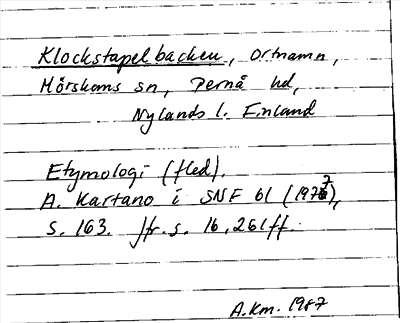 Klockstapelbacken, Ortnamn,
Mörskoms sn, Pernå hd,
Nylands l. Finland
Etymologi (fled).
A. Kartano i SNF 61 (1977),
s. 163. Jfr. s. 16, 261ff.
A.Km. 1987